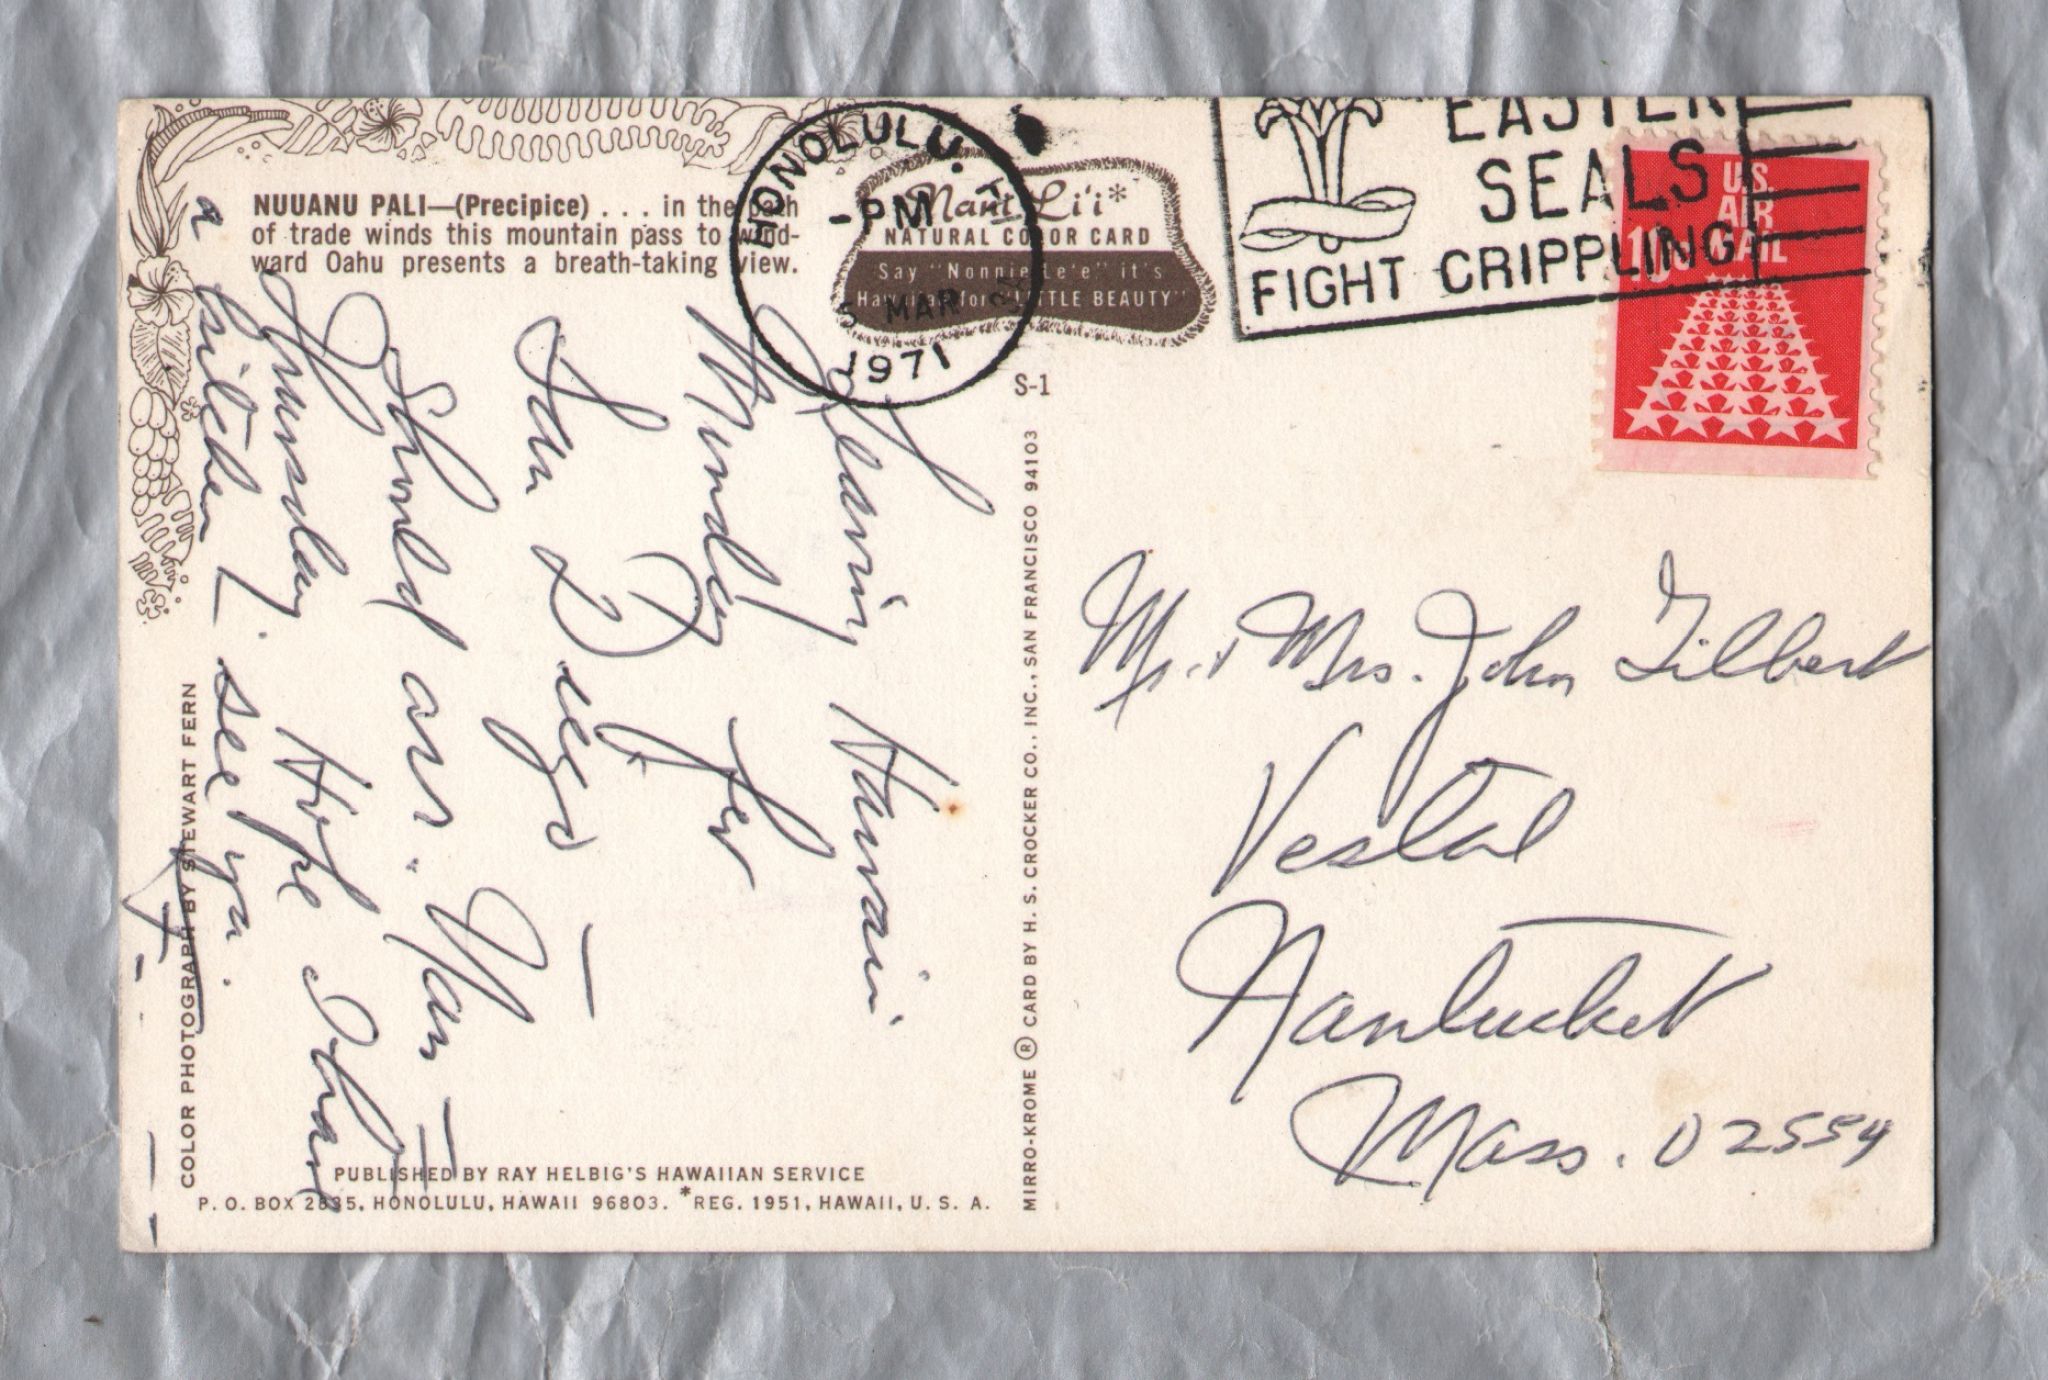 NUUANU PALI—(Precipice) . . . in the path
of trade winds this mountain pass to wind-
ward Oahu presents a breath-taking view.
HONOLULU,
-PM
5 MAR
1971
Nani Li'i*
NATURAL COLOR CARD
Say "Nonnie Le'e" it's
Hawaiian for "LITTLE BEAUTY"
S-1
EASTER
SEALS
FIGHT CRIPPLING
U.S.
AIR
10¢ MAIL
Leaving Hawaii
Monday for
San Diego —
Should arr. Nan —
Thursday. Hope I have
a kitchen — see ya.
Mr. + Mrs. John Gilbert
Vestal
Nantucket
Mass. 02554
COLOR PHOTOGRAPH BY STEWART FERN
MIRRO-KROME ® CARD BY H. S. CROCKER CO., INC., SAN FRANCISCO 94103
PUBLISHED BY RAY HELBIG'S HAWAIIAN SERVICE
P. O. BOX 2835, HONOLULU, HAWAII 96803. *REG. 1951, HAWAII, U. S. A.